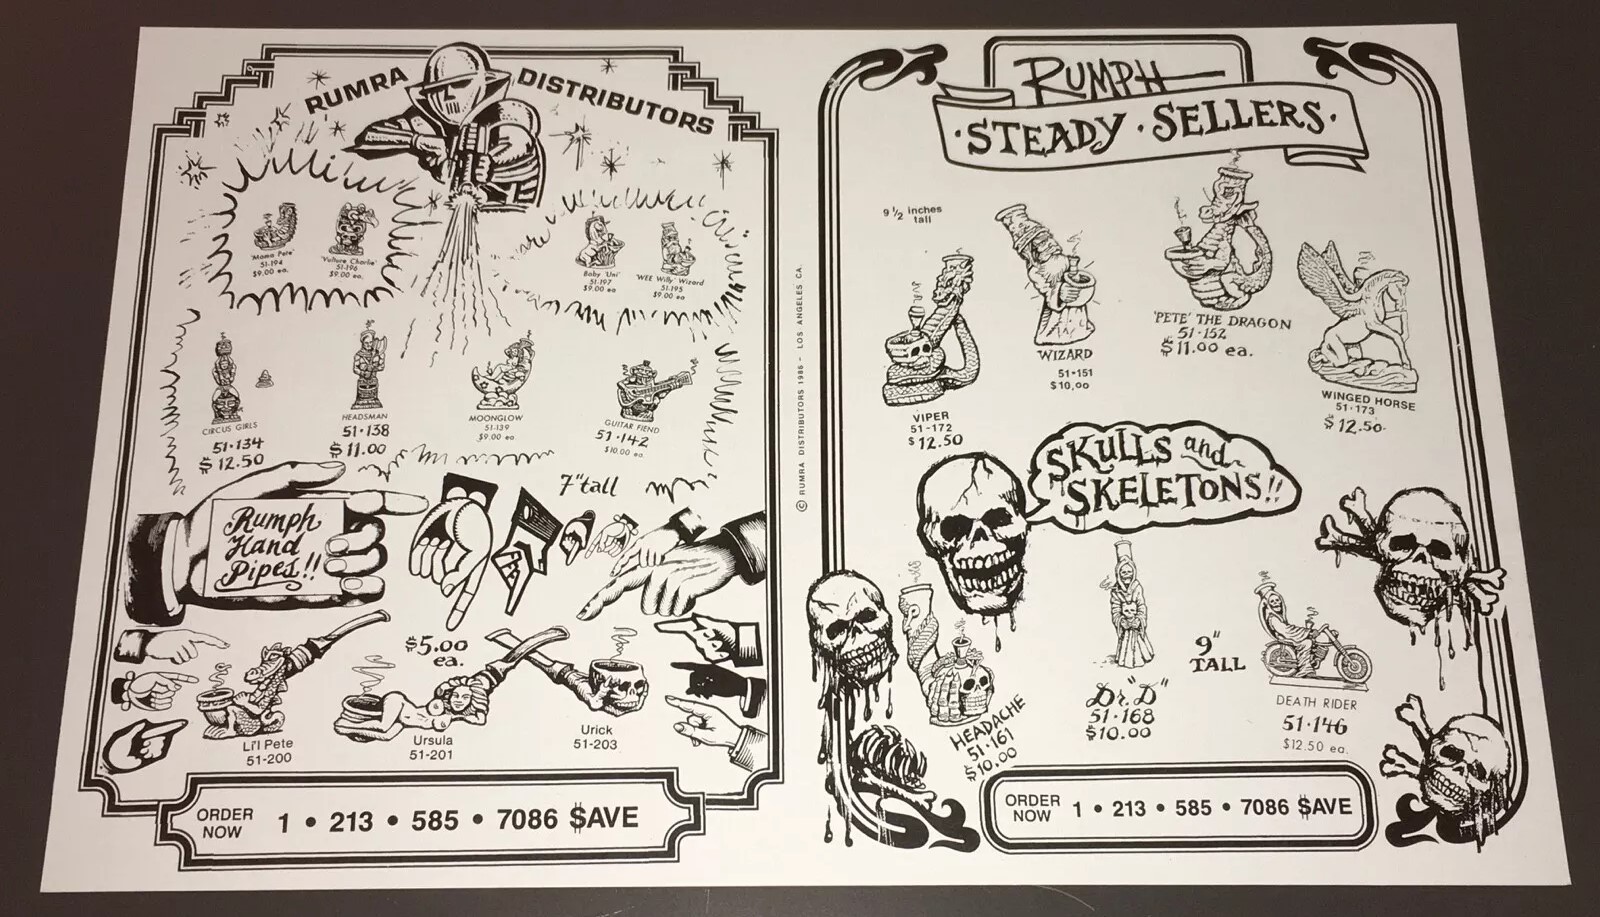 RUMRA DISTRIBUTORS
'Mama Pete'
51-194
$9.00 ea.
'Vulture Charlie'
51-196
$9.00 ea.
Baby 'Uni'
51-197
$9.00 ea
'WEE Willy' Wizard
51-195
$9.00 ea
CIRCUS GIRLS
51-134
$12.50
HEADSMAN
51-138
$11.00
MOONGLOW
51-139
$9.00 ea
GUITAR FIEND
51-142
$10.00 ea.
7" tall
Rumph
Hand
Pipes!!
$5.00
ea.
Li'l Pete
51-200
Ursula
51-201
Urick
51-203
ORDER
NOW
1 • 213 • 585 • 7086 $AVE
© RUMRA DISTRIBUTORS 1986 - LOS ANGELES CA.
RUMPH
·STEADY·SELLERS·
9 1/2 inches
tall
VIPER
51-172
$12.50
WIZARD
51-151
$10,00
'PETE' THE DRAGON
51-152
$11.00 ea.
WINGED HORSE
51-173
$12.50
SKULLS and
SKELETONS!!
HEADACHE
51-161
$10.00
Dr. "D"
51-168
$10.00
9"
TALL
DEATH RIDER
51-146
$12.50 ea.
ORDER
NOW
1 • 213 • 585 • 7086 $AVE